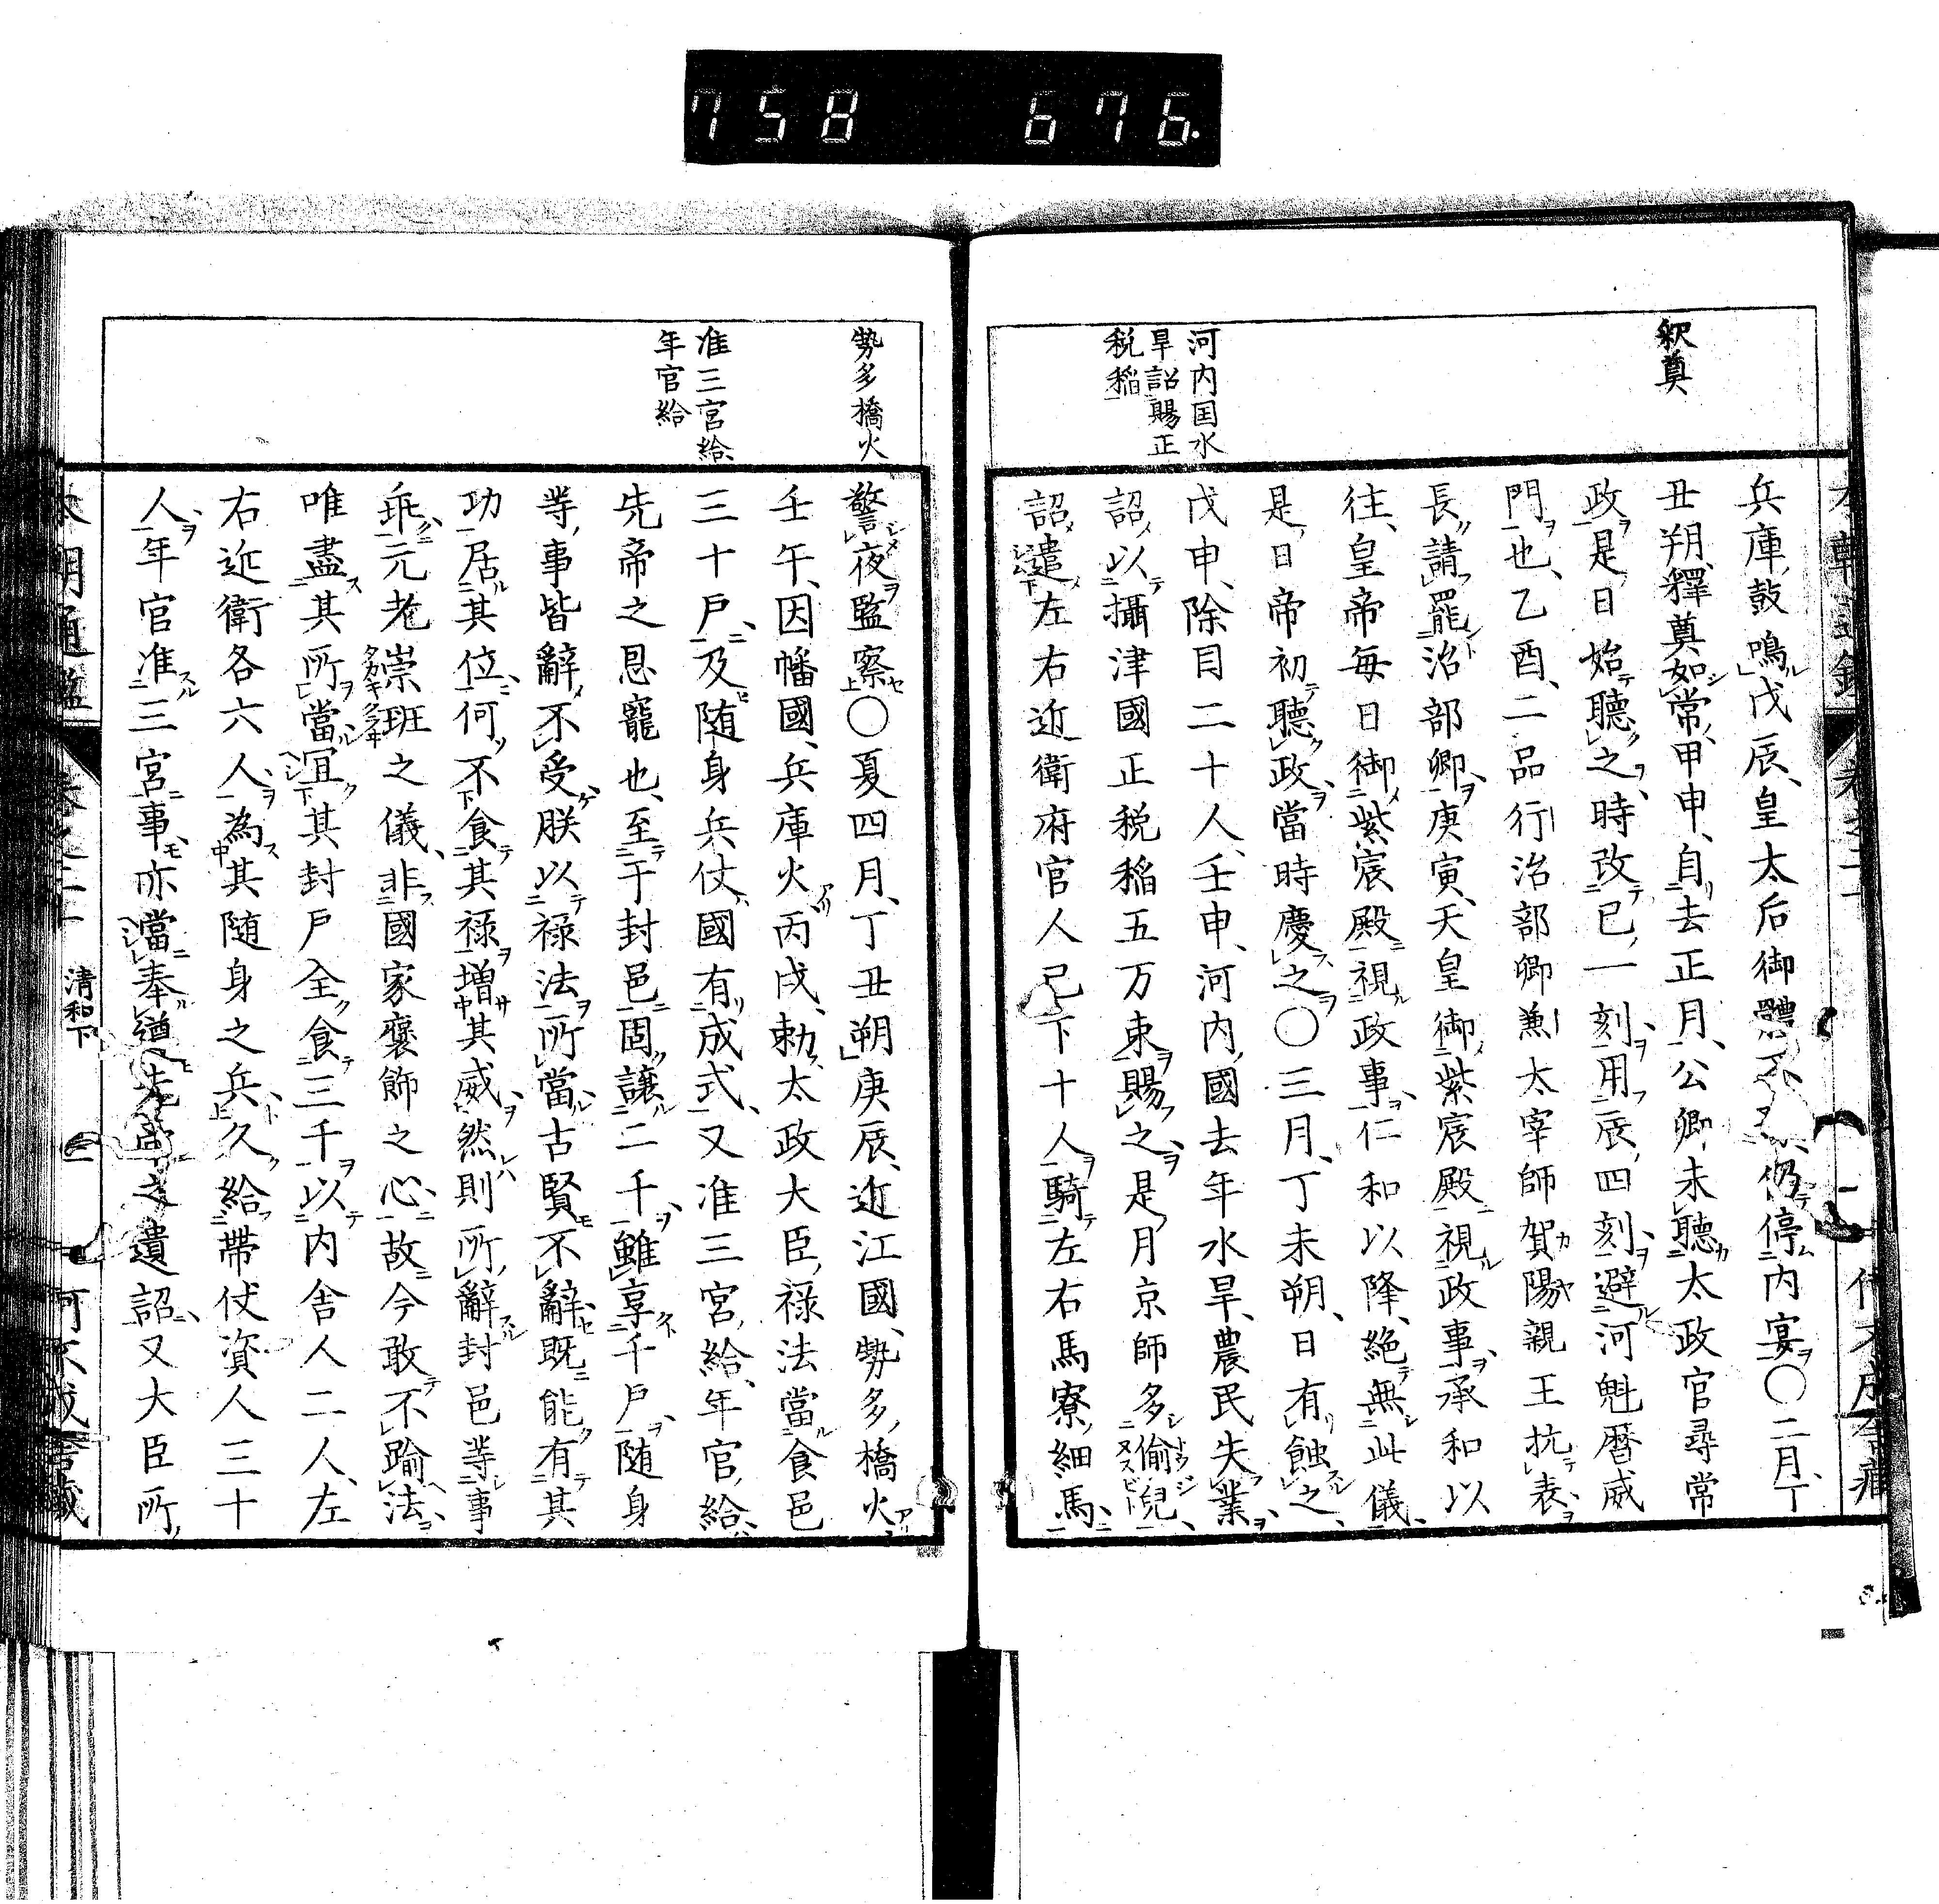 758 676.
釈奠
河内国水
旱詔賜正
税稲
兵庫鼓鳴戊辰皇太后御體不仍停内宴〇二月丁
丑朔釋奠如常甲申自去正月公卿未聽太政官尋常
政是日始聽之時改巳一刻用辰四刻避河魁暦威
門也乙酉二品行治部卿兼太宰師賀陽親王抗表
長請罷治部卿庚寅天皇御紫宸殿視政事承和以
往皇帝毎日御紫宸殿視政事仁和以降絶無此儀
是日帝初聽政當時慶之〇三月丁未朔日有蝕之
戊申除目二十人壬申河内國去年水旱農民失業
詔以攝津國正税稲五万束賜之是月京師多偷兒
詔遣左右近衛府官人已下十人騎左右馬寮細馬
勢多橋火
准三宮給
年官給
警夜監察〇夏四月丁丑朔庚辰近江國勢多橋火
壬午因幡國兵庫火丙戌勅太政大臣禄法當食邑
三十戸及随身兵仗國有成式又准三宮給年官給
先帝之恩寵也至于封邑固譲二千雖享千戸随身
等事皆辭不受朕以禄法所當古賢不辭既能有其
功居其位何不食其禄増其威然則所辭封邑等事
乖元老崇班之儀非國家褒飾之心故今敢不踰法
唯盡其所當宜其封戸全食三千以内舎人二人左
右近衛各六人為其随身之兵久給帶仗資人三十
人年官准三宮事亦當奉遵先帝之遺詔又大臣所
清和下